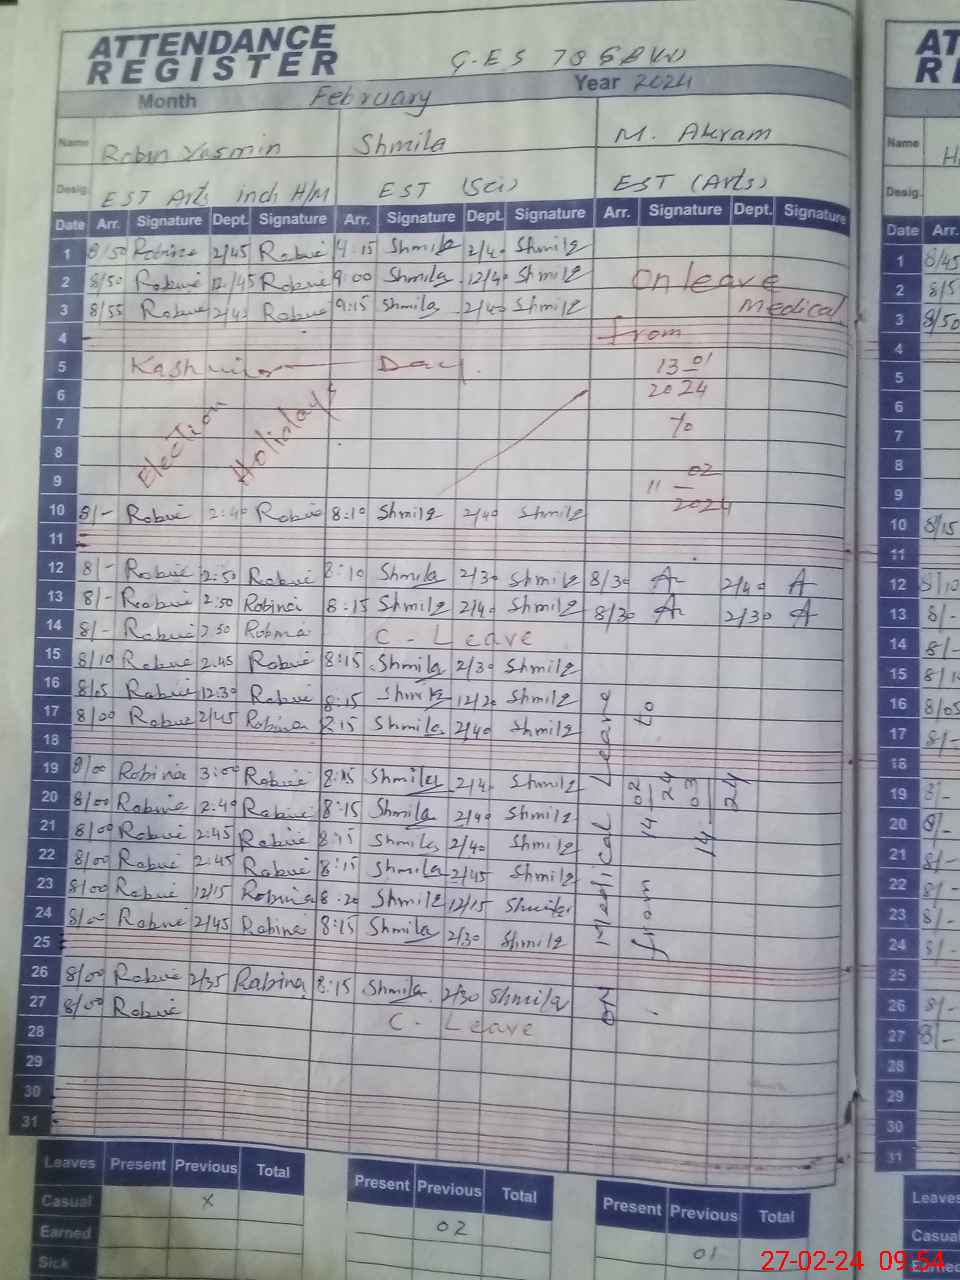 ATTENDANCE
REGISTER
Month February Year 2024
Name Robin Yasmin Shmila M. Akram
Desig. EST Arts inch H/M EST (Sci) EST (Arts)
Date Arr. Signature Dept. Signature Arr. Signature Dept. Signature Arr. Signature Dept. Signature
1 8/50 2/45 9:15 Shmila 2/40 Shmila
2 8/50 12/45 9:00 Shmila 12/40 Shmila On leave
3 8/55 2/45 9:15 Shmila 2/40 Shmila Medical
4 From
5 Kashmir Day. 13-01
6 2024
7 Election Holidays To
8
9 11-02
10 8/- 2:40 8:10 Shmila 2/40 Shmila 2024
11
12 8/- 2:50 8:10 Shmila 2/30 Shmila 8/30 A 2/40 A
13 8/- 2:50 8:15 Shmila 2/40 Shmila 8/30 A 2/30 A
14 8/- 2:50 C-Leave
15 8/10 2:45 8:15 Shmila 2/30 Shmila
16 8/05 12:30 8:15 12/20 Shmila
17 8/00 2/45 8:15 Shmila 2/40 Shmila
18
19 8/00 Robina 3:00 8:15 Shmila 2/4 Shmila
20 8/00 2:40 8:15 Shmila 2/40 Shmila
21 8/00 2:45 8:15 Shmila 2/40 Shmila
22 8/00 2:45 8:15 Shmila 2/45 Shmila
23 8/00 12/15 Robina 8:20 Shmila 12/15 Shmila
24 8/00 2/45 Robina 8:15 Shmila 2/30 Shmila
25
26 8/00 2/35 Robina 8:15 Shmila 2/30 Shmila
27 8/00 C-Leave
28
29
30
31
ON Medical Leave
from 14-02-24 to
14-03-24
Leaves Present Previous Total Present Previous Total Present Previous Total
Casual X 02 01
Earned
Sick
AT
RE
Name H
Desig.
Date Arr.
1 8/45
2 8/5
3 8/50
4
5
6
7
8
9
10 8/15
11
12 8/10
13 8/-
14 8/-
15 8/1
16 8/05
17 8/-
18
19 8/-
20 8/-
21 8/-
22 8/-
23 8/-
24 8/-
25
26 8/-
27 8/-
28
29
30
31
Leaves
Casual
Earned
27-02-24 09:54